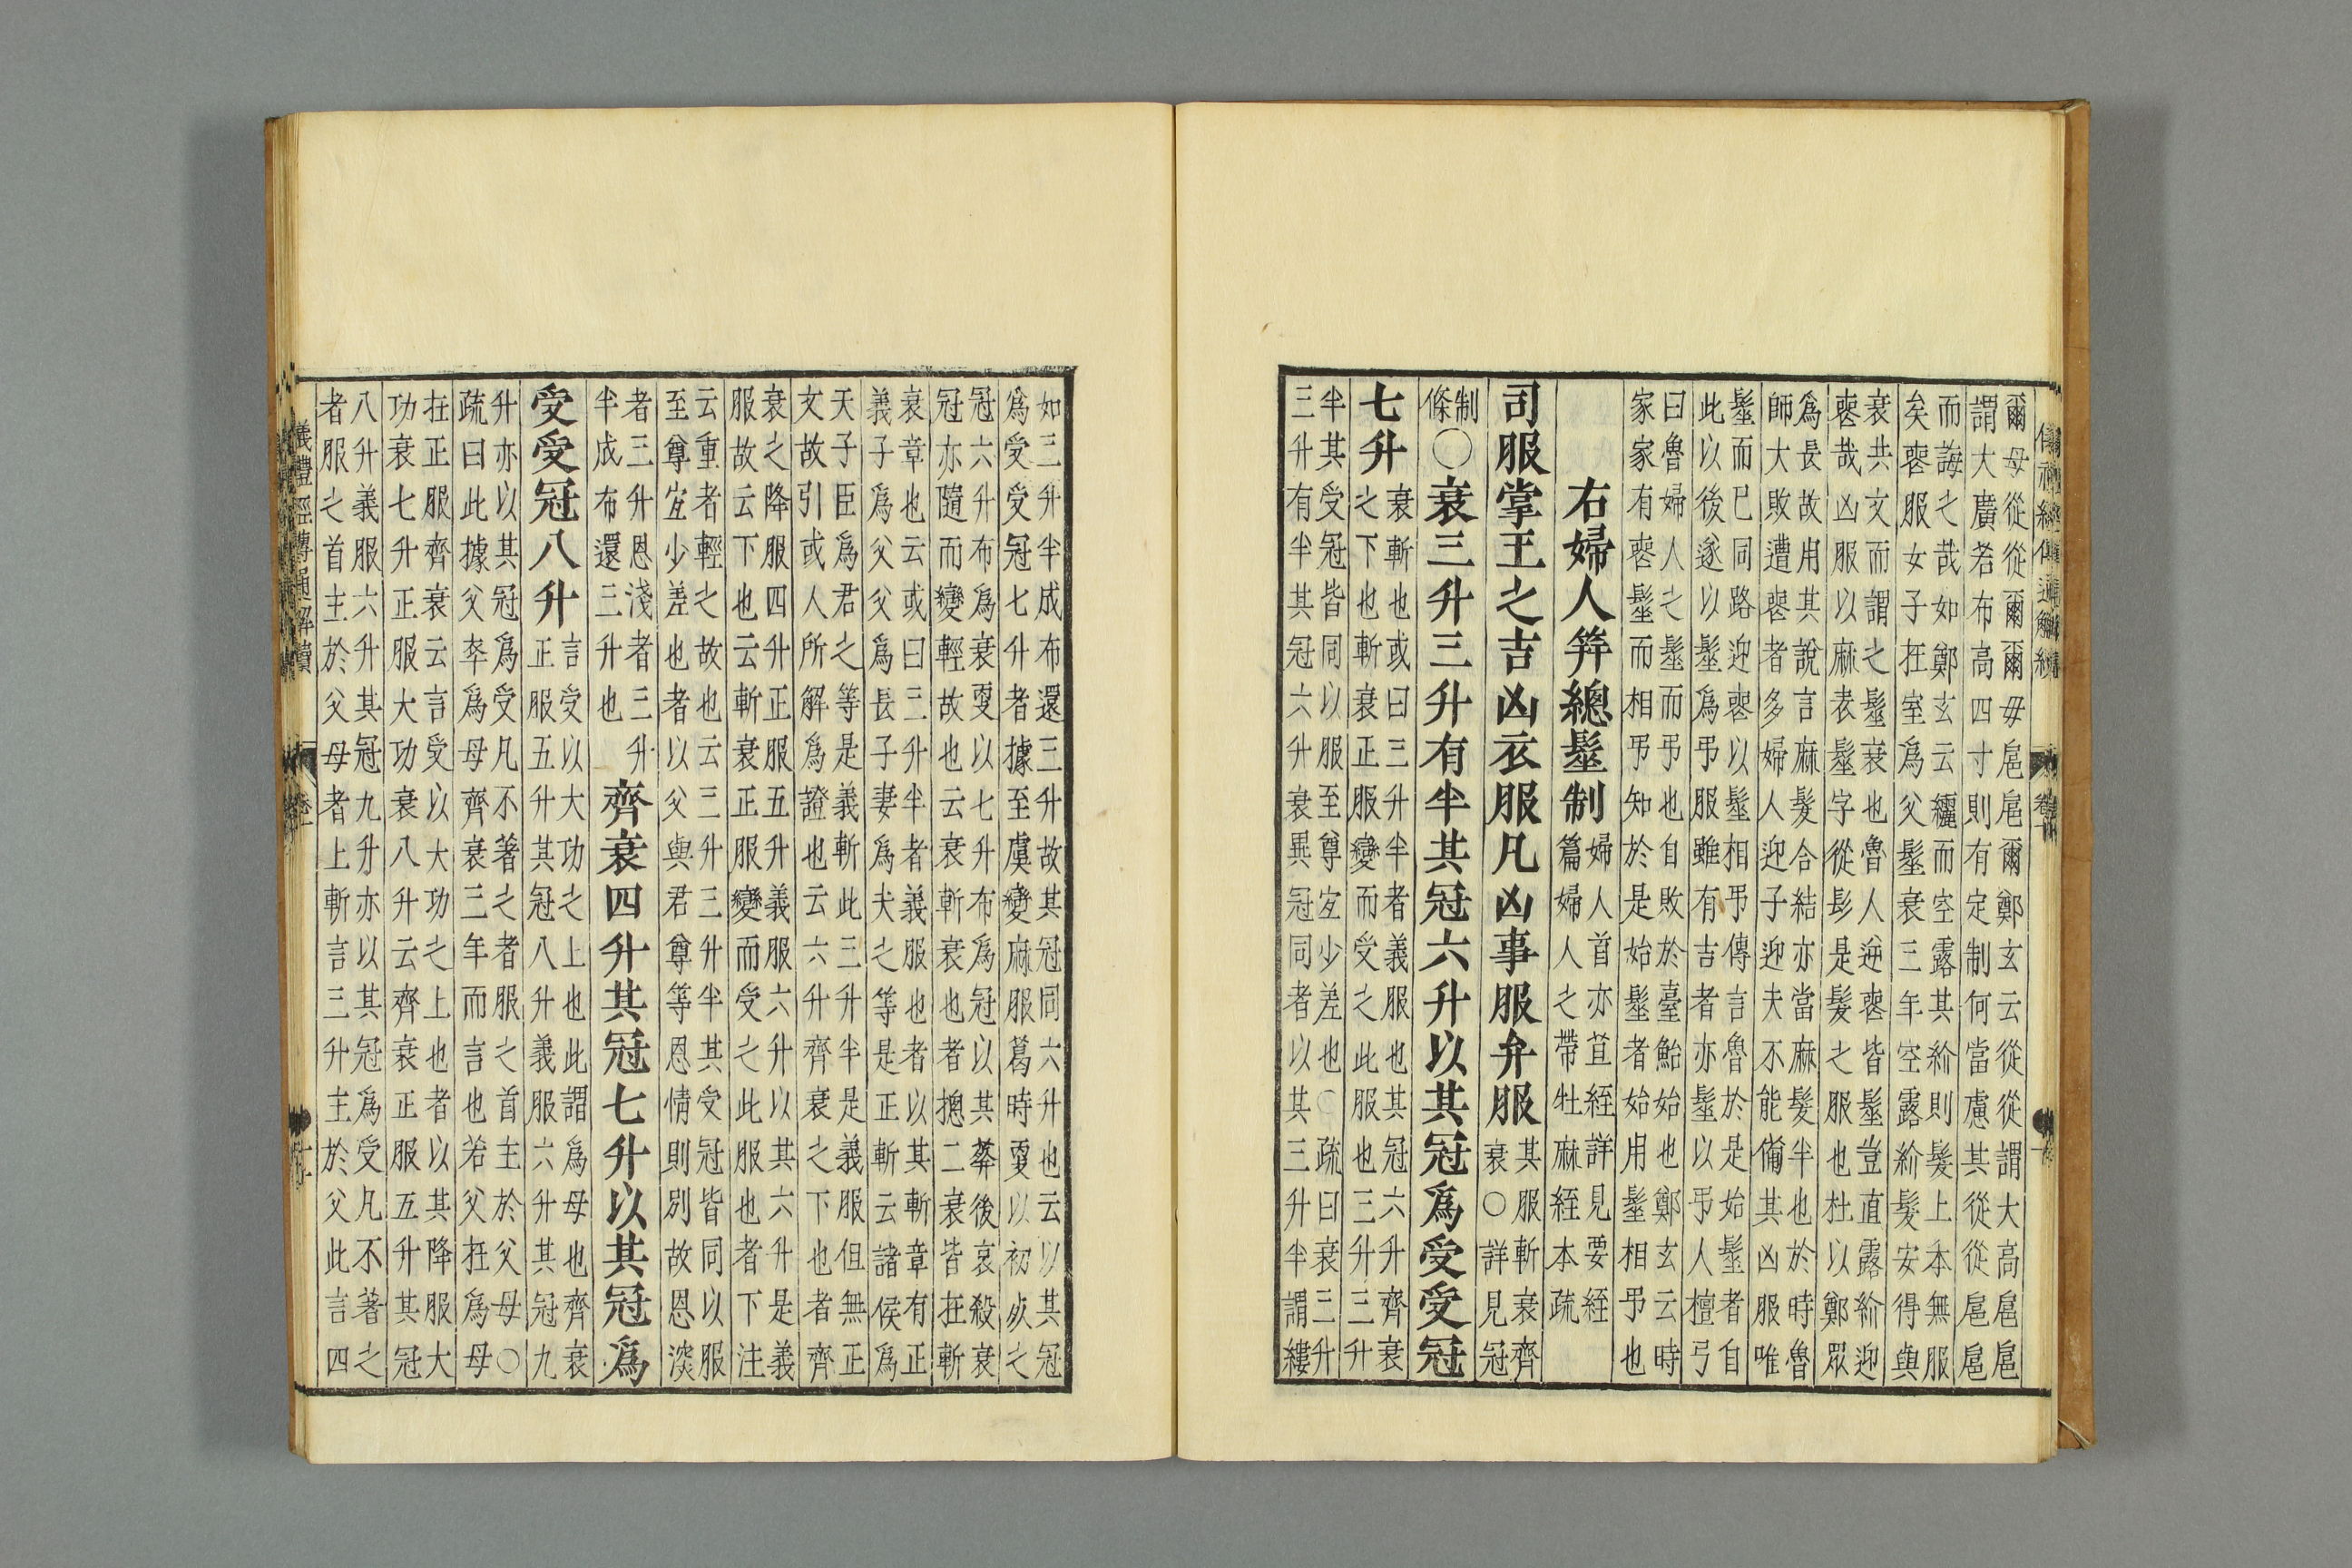 爾毋從從爾爾毋扈扈爾鄭玄云從從謂大高扈扈
謂大廣若布高四寸則有定制何當慮其從從扈扈
而誨之哉如鄭玄云纚而空露其紒則髮上本無服
矣䘮服女子在室爲父髽衰三年空露紒髮安得與
衰共文而謂之髽衰也魯人逆䘮皆髽豈直露紒迎
䘮哉凶服以麻表髽字從髟是髮之服也杜以鄭眾
爲長故用其說言麻髮合結亦當麻髮半也於時魯
師大敗遭䘮者多婦人迎子迎夫不能備其凶服唯
髽而已同路迎䘮以髽相弔傳言魯於是始髽者自
此以後遂以髽爲弔服雖有吉者亦髽以弔人檀弓
曰魯婦人之髽而弔也自敗於臺鮐始也鄭玄云時
家家有䘮髽而相弔知於是始髽者始用髽相弔也
右婦人筓總髽制
婦人首亦苴絰詳見要絰
篇婦人之帶牡麻絰本疏
司服掌王之吉凶衣服凡凶事服弁服
其服斬衰齊
衰○詳見冠
制
條
○衰三升三升有半其冠六升以其冠爲受受冠
七升
衰斬也或曰三升半者義服也其冠六升齊衰
之下也斬衰正服變而受之此服也三升三升
半其受冠皆同以服至尊宜少差也○疏曰衰三升
三升有半其冠六升衰異冠同者以其三升半謂縷
如三升半成布還三升故其冠同六升也云以其冠
爲受受冠七升者據至虞變麻服葛時更以初死之
冠六升布爲衰更以七升布爲冠以其葬後哀殺衰
冠亦隨而變輕故也云衰斬衰也者摠二衰皆在斬
衰章也云或曰三升半者義服也者以其斬章有正
義子爲父父爲長子妻爲夫之等是正斬云諸侯爲
天子臣爲君之等是義斬此三升半是義服但無正
文故引或人所解爲證也云六升齊衰之下也者齊
衰之降服四升正服五升義服六升以其六升是義
服故云下也云斬衰正服變而受之此服也者下注
云重者輕之故也云三升三升半其受冠皆同以服
至尊宜少差也者以父與君尊等恩情則別故恩深
者三升恩淺者三升
半成布還三升也
齊衰四升其冠七升以其冠爲
受受冠八升
言受以大功之上也此謂爲母也齊衰
正服五升其冠八升義服六升其冠九
升亦以其冠爲受凡不著之者服之首主於父母○
疏曰此據父卒爲母齊衰三年而言也若父在爲母
在正服齊衰云言受以大功之上也者以其降服大
功衰七升正服大功衰八升云齊衰正服五升其冠
八升義服六升其冠九升亦以其冠爲受凡不著之
者服之首主於父母者上斬言三升主於父此言四
儀禮經傳通解續